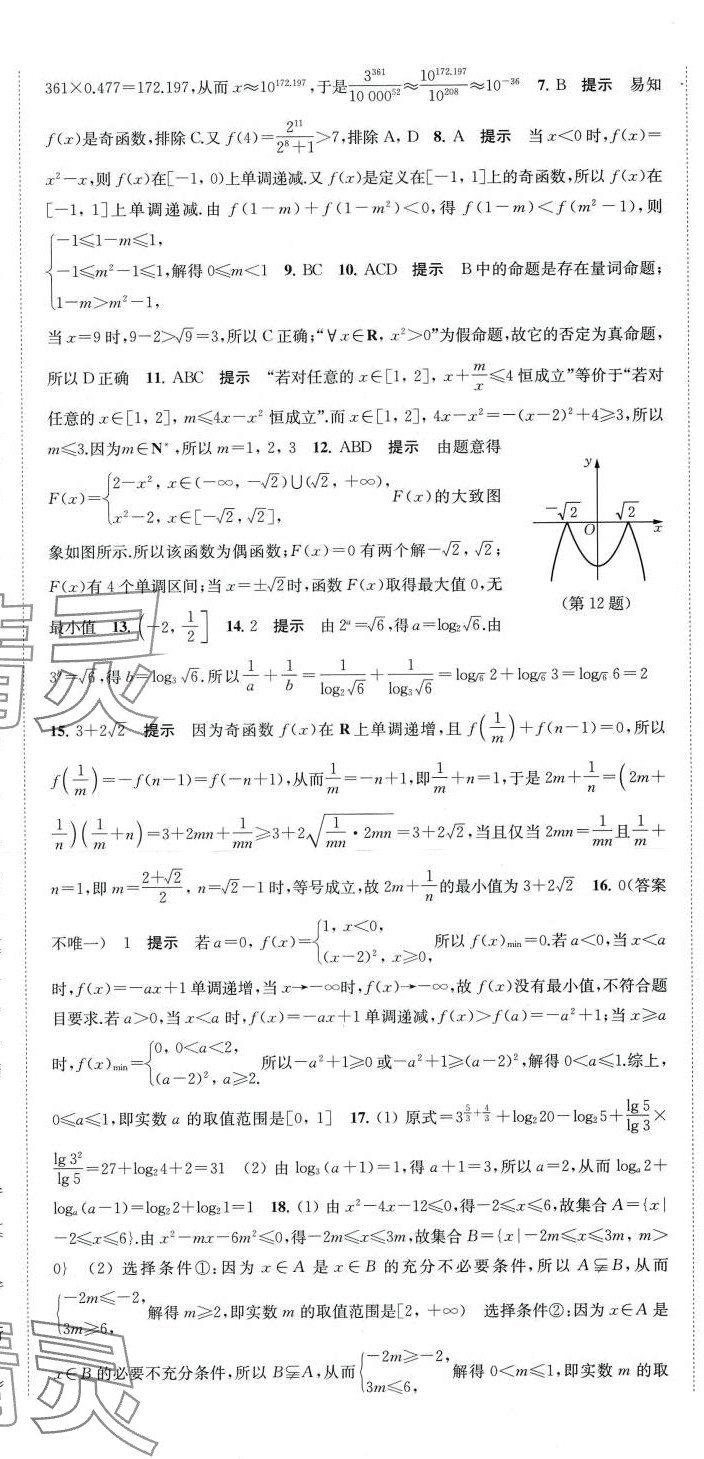 361×0.477=172.197,从而 x≈10^{172.197},于是\frac{3^{361}}{10 000^{52}}≈\frac{10^{172.197}}{10^{208}}≈10^{-36} 7. B 提示 易知
f(x)是奇函数,排除 C.又 f(4)=\frac{2^{11}}{2^8+1}>7,排除 A, D 8. A 提示 当 x<0 时,f(x)=
x²-x,则 f(x)在[-1, 0)上单调递减.又 f(x)是定义在[-1, 1]上的奇函数,所以 f(x)在
[-1, 1]上单调递减.由 f(1-m)+f(1-m²)<0,得 f(1-m)<f(m²-1),则
{-1≤1-m≤1,
-1≤m²-1≤1,解得 0≤m<1 9. BC 10. ACD 提示 B 中的命题是存在量词命题;
1-m>m²-1,
当 x=9 时,9-2>√9=3,所以 C 正确;“∀x∈R, x²>0”为假命题,故它的否定为真命题,
所以 D 正确 11. ABC 提示 “若对任意的 x∈[1, 2], x+\frac{m}{x}≤4 恒成立”等价于“若对
任意的 x∈[1, 2], m≤4x-x² 恒成立”.而 x∈[1, 2], 4x-x²=-(x-2)²+4≥3,所以
m≤3.因为m∈N*,所以 m=1, 2, 3 12. ABD 提示 由题意得
F(x)={2-x², x∈(-∞, -√2)∪(√2, +∞),
x²-2, x∈[-√2, √2], F(x)的大致图
象如图所示.所以该函数为偶函数;F(x)=0 有两个解-√2, √2;
F(x)有 4 个单调区间;当 x=±√2时,函数 F(x)取得最大值 0,无
y
-√2
√2
O
x
(第 12 题)
最小值 13. (-2, \frac{1}{2}] 14. 2 提示 由 2^a=√6,得 a=log₂√6.由
3^b=√6,得 b=log₃√6.所以\frac{1}{a}+\frac{1}{b}=\frac{1}{log₂√6}+\frac{1}{log₃√6}=log_{√6} 2+log_{√6} 3=log_{√6} 6=2
15. 3+2√2 提示 因为奇函数 f(x)在 R 上单调递增,且 f(\frac{1}{m})+f(n-1)=0,所以
f(\frac{1}{m})=-f(n-1)=f(-n+1),从而\frac{1}{m}=-n+1,即\frac{1}{m}+n=1,于是 2m+\frac{1}{n}=(2m+
\frac{1}{n})(\frac{1}{m}+n)=3+2mn+\frac{1}{mn}≥3+2\sqrt{\frac{1}{mn}·2mn}=3+2√2,当且仅当 2mn=\frac{1}{mn}且\frac{1}{m}+
n=1,即 m=\frac{2+√2}{2}, n=√2-1 时,等号成立,故 2m+\frac{1}{n}的最小值为 3+2√2 16. 0(答案
不唯一) 1 提示 若 a=0, f(x)={1, x<0,
(x-2)², x≥0, 所以 f(x)_{min}=0.若 a<0,当 x<a
时,f(x)=-ax+1 单调递增,当 x→-∞时,f(x)→-∞,故 f(x)没有最小值,不符合题
目要求.若 a>0,当 x<a 时,f(x)=-ax+1 单调递减,f(x)>f(a)=-a²+1;当 x≥a
时,f(x)_{min}={0, 0<a<2,
(a-2)², a≥2. 所以-a²+1≥0 或-a²+1≥(a-2)²,解得 0<a≤1.综上,
0≤a≤1,即实数 a 的取值范围是[0, 1] 17. (1) 原式=3^{\frac{5}{3}+\frac{4}{3}}+log₂20-log₂5+\frac{lg 5}{lg 3}×
\frac{lg 3²}{lg 5}=27+log₂4+2=31 (2) 由 log₃(a+1)=1,得 a+1=3,所以 a=2,从而 logₐ2+
logₐ(a-1)=log₂2+log₂1=1 18. (1) 由 x²-4x-12≤0,得-2≤x≤6,故集合 A={x|
-2≤x≤6}.由 x²-mx-6m²≤0,得-2m≤x≤3m,故集合 B={x|-2m≤x≤3m, m>
0} (2) 选择条件①:因为 x∈A 是 x∈B 的充分不必要条件,所以 A⫋B,从而
{-2m≤-2,
3m≥6, 解得 m≥2,即实数 m 的取值范围是[2, +∞) 选择条件②:因为 x∈A 是
x∈B 的必要不充分条件,所以 B⫋A,从而{-2m≥-2,
3m≤6, 解得 0<m≤1,即实数 m 的取
精灵
精灵